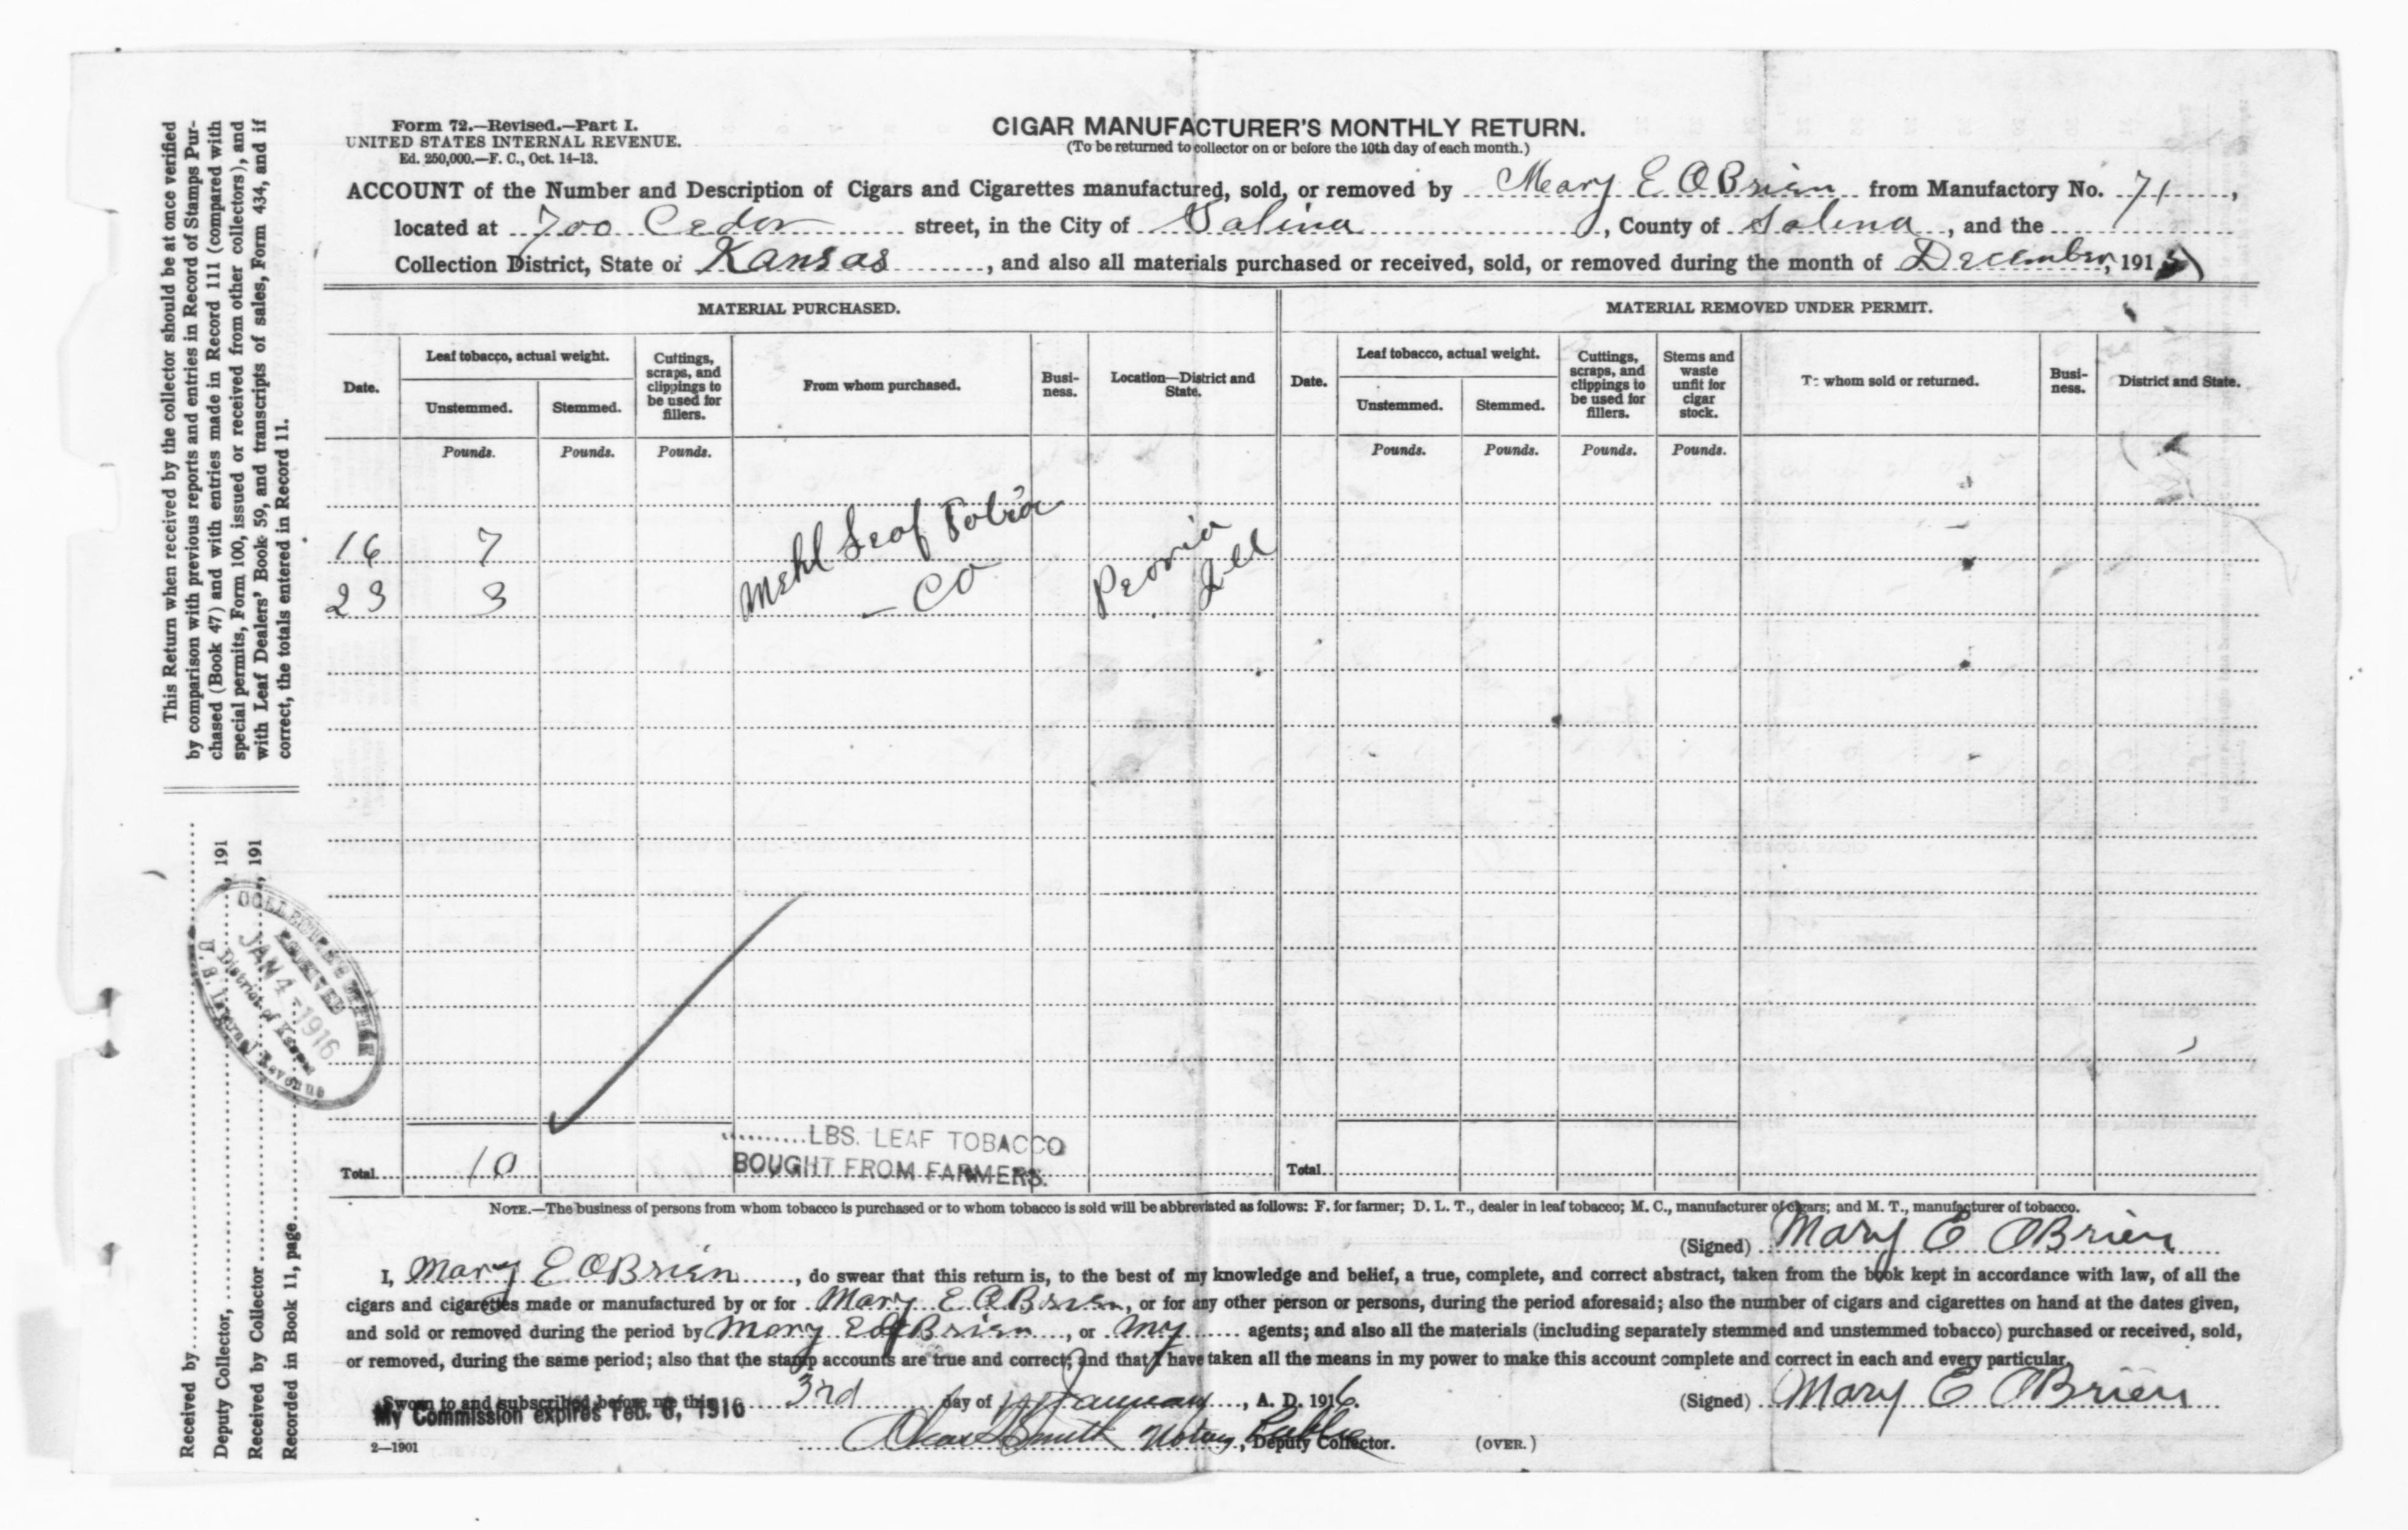 Form 72.—Revised.—Part I.
UNITED STATES INTERNAL REVENUE.
Ed. 250,000.—F. C., Oct. 14-13.
CIGAR MANUFACTURER'S MONTHLY RETURN.
(To be returned to collector on or before the 10th day of each month.)
ACCOUNT of the Number and Description of Cigars and Cigarettes manufactured, sold, or removed by Mary E OBrien from Manufactory No. 71,
located at 700 Cedar street, in the City of Salina, County of Salina, and the
Collection District, State of Kansas, and also all materials purchased or received, sold, or removed during the month of December, 1915
MATERIAL PURCHASED.
Date.
Leaf tobacco, actual weight.
Unstemmed.
Stemmed.
Cuttings, scraps, and clippings to be used for fillers.
From whom purchased.
Busi-ness.
Location—District and State.
Pounds. Pounds. Pounds.
16 7 Mehl Leaf Tob'co Peoria
23 3 — CO Ill
Total 10
..........LBS. LEAF TOBACCO
BOUGHT FROM FARMERS.
MATERIAL REMOVED UNDER PERMIT.
Date.
Leaf tobacco, actual weight.
Unstemmed.
Stemmed.
Cuttings, scraps, and clippings to be used for fillers.
Stems and waste unfit for cigar stock.
To whom sold or returned.
Busi-ness.
District and State.
Pounds. Pounds. Pounds. Pounds.
Total
NOTE.—The business of persons from whom tobacco is purchased or to whom tobacco is sold will be abbreviated as follows: F. for farmer; D. L. T., dealer in leaf tobacco; M. C., manufacturer of cigars; and M. T., manufacturer of tobacco.
(Signed) Mary E OBrien
I, Mary E OBrien, do swear that this return is, to the best of my knowledge and belief, a true, complete, and correct abstract, taken from the book kept in accordance with law, of all the
cigars and cigarettes made or manufactured by or for Mary E OBrien, or for any other person or persons, during the period aforesaid; also the number of cigars and cigarettes on hand at the dates given,
and sold or removed during the period by Mary E OBrien, or my agents; and also all the materials (including separately stemmed and unstemmed tobacco) purchased or received, sold,
or removed, during the same period; also that the stamp accounts are true and correct; and that I have taken all the means in my power to make this account complete and correct in each and every particular.
Sworn to and subscribed before me this 3rd day of January, A. D. 1916.
My Commission expires Feb. 6, 1916
(Signed) Mary E OBrien
Smith Notary Public, Deputy Collector.
2—1901
(OVER.)
This Return when received by the collector should be at once verified
by comparison with previous reports and entries in Record of Stamps Pur-
chased (Book 47) and with entries made in Record 111 (compared with
special permits, Form 100, issued or received from other collectors), and
with Leaf Dealers' Book 59, and transcripts of sales, Form 434, and if
correct, the totals entered in Record 11.
Received by
Deputy Collector, , 191
Received by Collector , 191
Recorded in Book 11, page
COLLECTOR'S OFFICE
RECEIVED
JAN 4 - 1916
District of Kansas
U. S. Internal Revenue